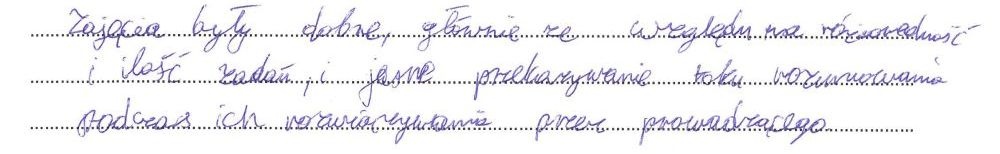 Zajęcia były dobre, głównie ze względu na różnorodność
i ilość zadań, i jasne przekazywanie toku rozumowania
podczas ich rozwiązywania przez prowadzącego